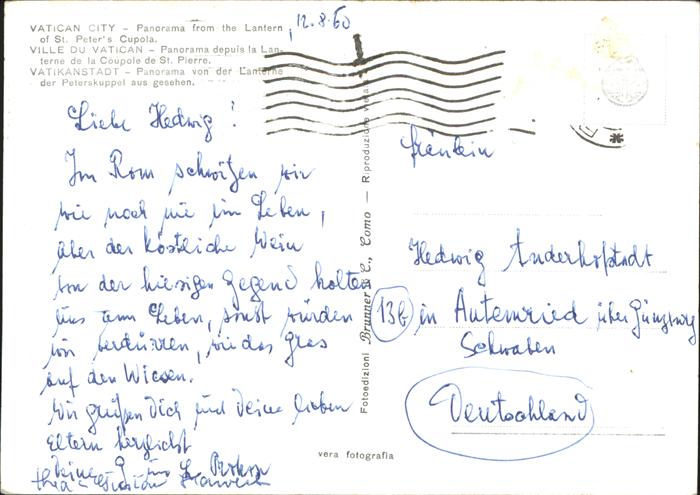 VATICAN CITY – Panorama from the Lantern
of St. Peter's Cupola.
VILLE DU VATICAN – Panorama depuis la Lan-
terne de la Coupole de St. Pierre.
VATIKANSTADT – Panorama von der Lanterne
der Peterskuppel aus gesehen.
12.8.60
Liebe Hedwig!
Im Rom schwitzen wir
wie noch nie im Leben,
aber der köstliche Wein
von der hiesigen Gegend halten
uns am Leben, sonst würden
wir verdürren, wie das Gras
auf den Wiesen.
Wir grüßen Dich und Deine lieben
Eltern herzlichst
Deine
Fotoedizioni Brunner & C., Como — Riproduzione vietata
vera fotografia
Fräulein
Hedwig Anderhofstadt
13b in Autenried über Günzburg
Schwaben
Deutschland